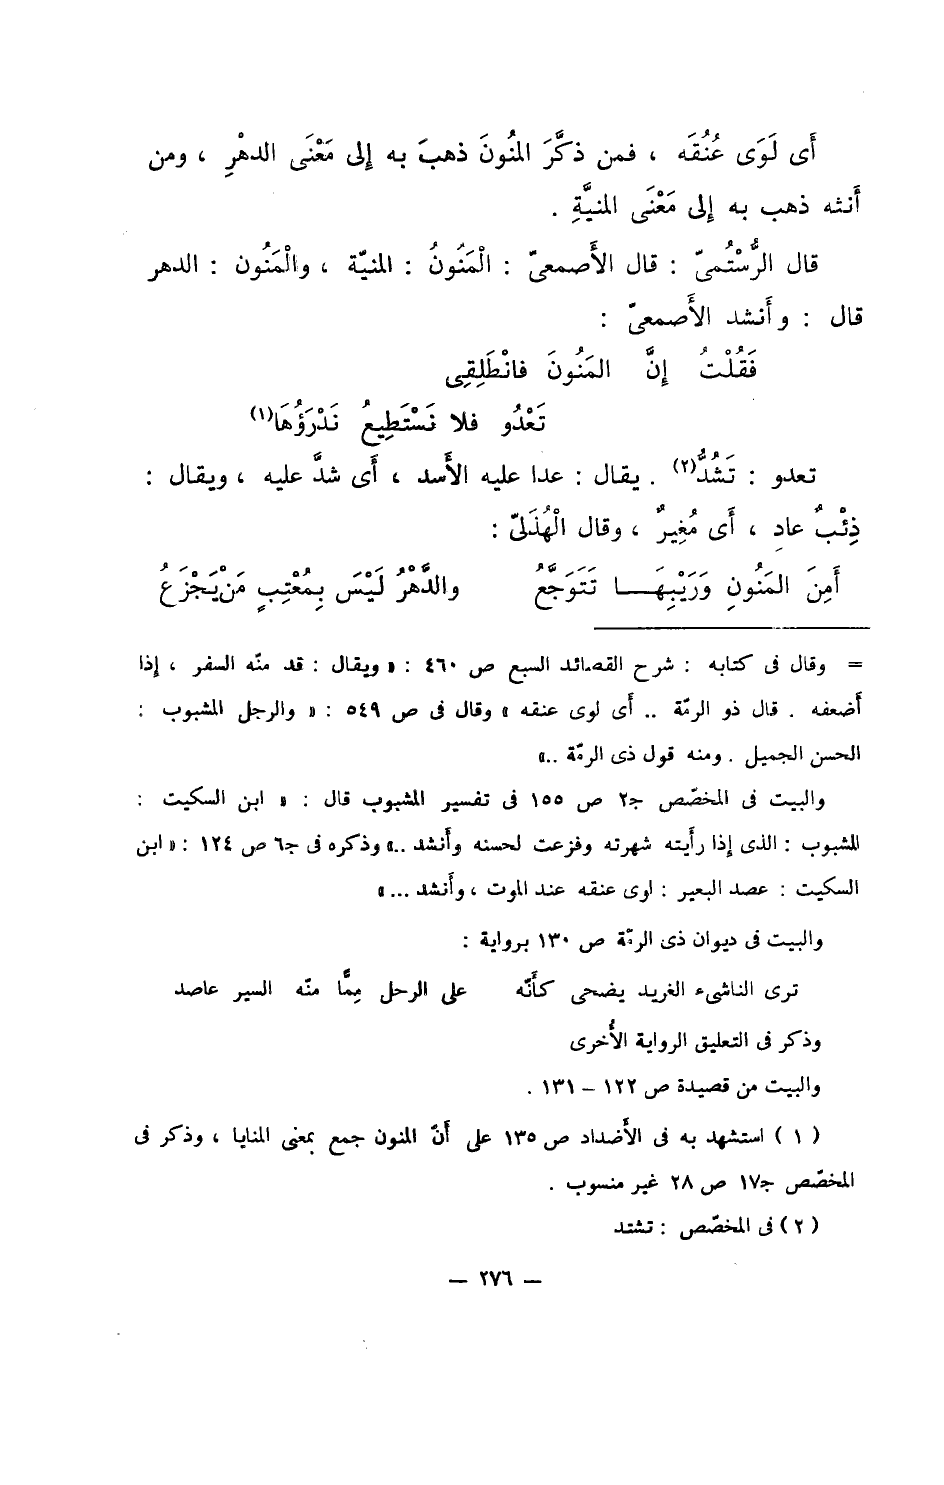 أَى لَوَى عُنُقَه ، فمن ذكَّرَ المنُونَ ذهبَ به إلى مَعْنَى الدهْرِ ، ومن
أَنثه ذهب به إلى مَعْنَى المنيَّةِ .
قال الرُّسْتُمىّ : قال الأَصمعىّ : الْمَنُونُ : المنيّة ، والْمَنُون : الدهر
قال : وأَنشد الأَصمعىّ :
فَقُلْتُ إنَّ المَنُونَ فانْطَلِقِى
تَعْدُو فلا نَسْتَطِيعُ نَدْرَؤُهَا(١)
تعدو : تَشُدُّ(٢) . يقال : عدا عليه الأَسد ، أَى شدَّ عليه ، ويقال :
ذِئْبٌ عادٍ ، أَى مُغِيرٌ ، وقال الْهُذَلىّ :
أَمِنَ المَنُونِ وَرَيْبِهَـــا تَتَوَجَّعُ والدَّهْرُ لَيْسَ بِمُعْتِبٍ مَنْ يَجْزَعُ
= وقال فى كتابه : شرح القصائد السبع ص ٤٦٠ : « ويقال : قد منّه السفر ، إذا
أَضعفه . قال ذو الرمّة .. أَى لوى عنقه » وقال فى ص ٥٤٩ : « والرجل المشبوب :
الحسن الجميل . ومنه قول ذى الرمّة ..»
والبيت فى المخصّص ج٢ ص ١٥٥ فى تفسير المشبوب قال : « ابن السكيت :
المشبوب : الذى إذا رأيته شهرته وفزعت لحسنه وأَنشد ..» وذكره فى ج٦ ص ١٢٤ : « ابن
السكيت : عصد البعير : لوى عنقه عند الموت ، وأَنشد ... »
والبيت فى ديوان ذى الرمّة ص ١٣٠ برواية :
ترى الناشىء الغريد يضحى كأَنّه على الرحل مِمَّا منّه السير عاصد
وذكر فى التعليق الرواية الأُخرى
والبيت من قصيدة ص ١٢٢ – ١٣١ .
( ١ ) استشهد به فى الأَضداد ص ١٣٥ على أَنّ المنون جمع بمعنى المنايا ، وذكر فى
المخصّص ج١٧ ص ٢٨ غير منسوب .
( ٢ ) فى المخصّص : تشتد
— ٢٧٦ —